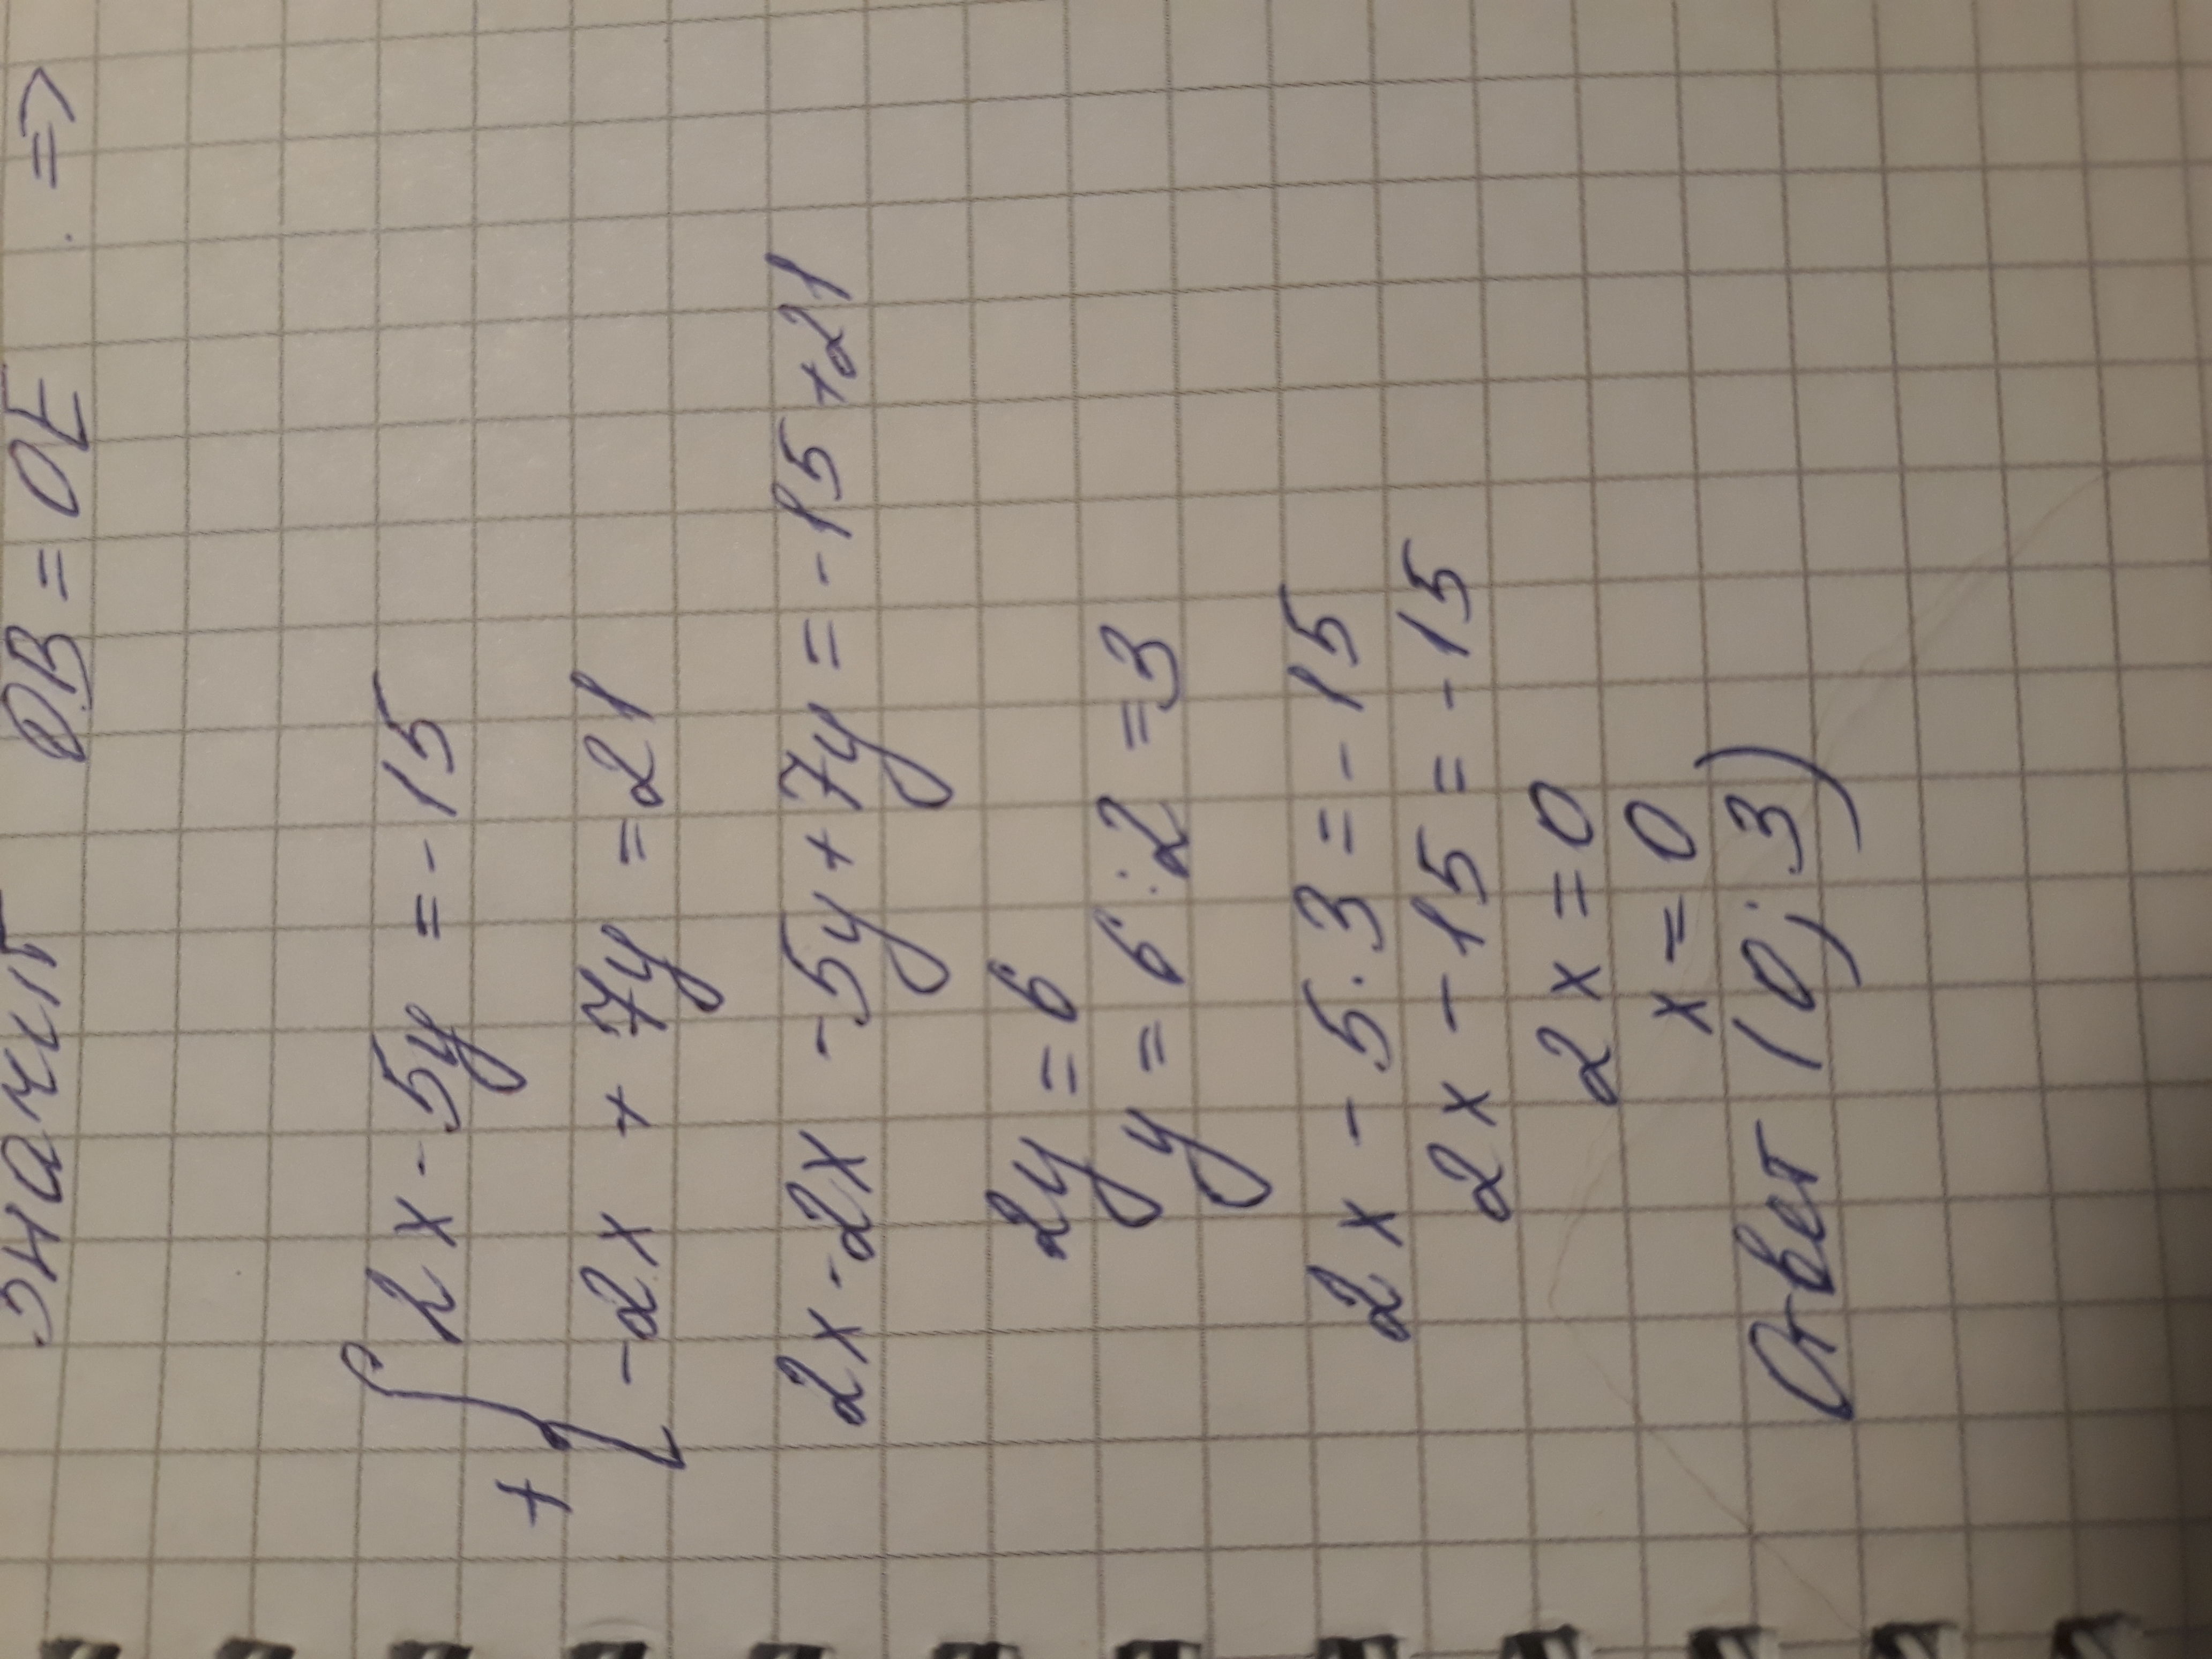 значит OB = OE . =>
+ { 2x - 5y = - 15
- 2x + 7y = 21
2x - 2x - 5y + 7y = - 15 + 21
2y = 6
y = 6 : 2 = 3
2x - 5 · 3 = - 15
2x - 15 = - 15
2x = 0
x = 0
Ответ (0; 3)